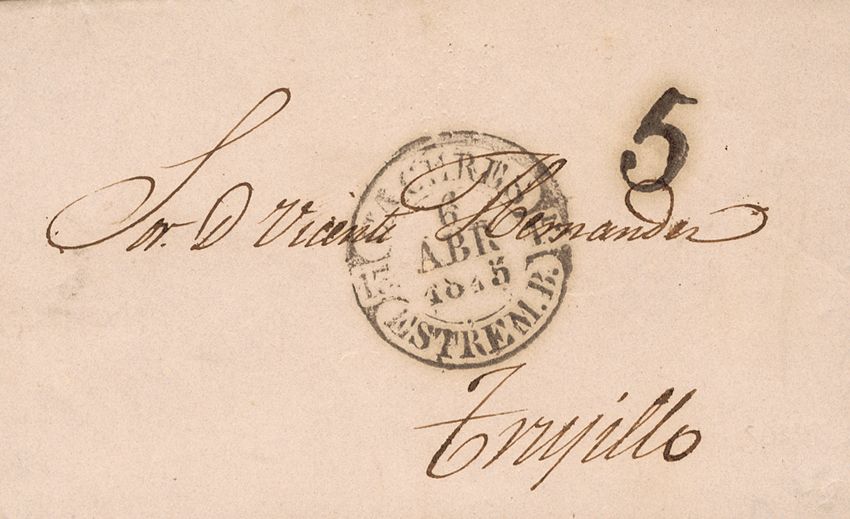 5
Sor. D Vicente Hernandez
6
ABR
1845
ESTREM. B.
Trujillo